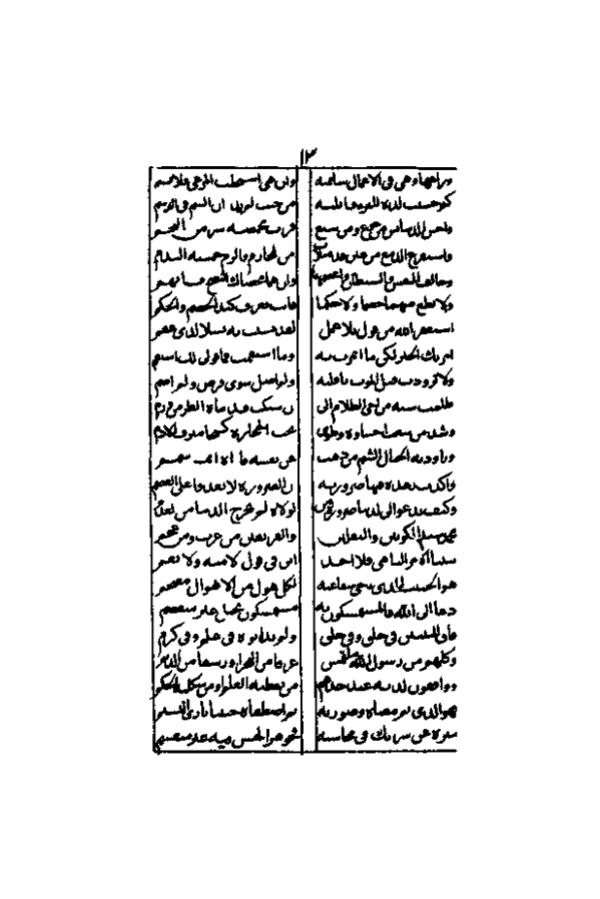 ١٣
وراعها وهي في الاعمال سائمة وان هي استحلت المرعى فلا تسم
كم حسنت لذة للمرء قاتلة من حيث لم يدر ان السم في الدسم
واخش الدسائس من جوع ومن شبع فرب مخمصة شر من التخم
واستفرغ الدمع من عين قد امتلات من المحارم والزم حمية الندم
وخالف النفس والشيطان واعصهما وان هما محضاك النصح فاتهم
ولا تطع منهما خصما ولا حكما فانت تعرف كيد الخصم والحكم
استغفر الله من قول بلا عمل لقد نسبت به نسلا لذى عقم
امرتك الخير لكن ما ائتمرت به وما استقمت فما قولى لك استقم
ولا تزودت قبل الموت نافلة ولم اصل سوى فرض ولم اصم
ظلمت سنة من احى الظلام الى ان شكت قدماه الضر من ورم
وشد من سغب احشاءه وطوى تحت الحجارة كشحا مترف الادم
وراودته الجبال الشم من ذهب عن نفسه فاراها ايما شمم
واكدت زهده فيها ضرورته ان الضرورة لا تعدو على العصم
وكيف تدعو الى الدنيا ضرورة من لولاه لم تخرج الدنيا من العدم
محمد سيد الكونين والثقلين والفريقين من عرب ومن عجم
نبينا الآمر الناهى فلا احد ابر فى قول لا منه ولا نعم
هو الحبيب الذى ترجى شفاعته لكل هول من الاهوال مقتحم
دعا الى الله فالمستمسكون به مستمسكون بحبل غير منفصم
فاق النبيين فى خلق وفى خلق ولم يدانوه فى علم وفى كرم
وكلهم من رسول الله ملتمس غرفا من البحر او رشفا من الديم
وواقفون لديه عند حدهم من نقطة العلم او من شكلة الحكم
فهو الذى تم معناه وصورته ثم اصطفاه حبيبا بارئ النسم
منزه عن شريك فى محاسنه فجوهر الحسن فيه غير منقسم